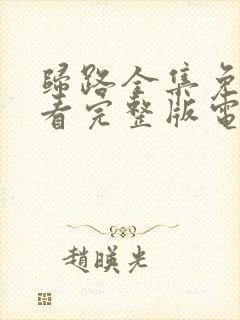 歸路全集免
看完整版電
趙暎光